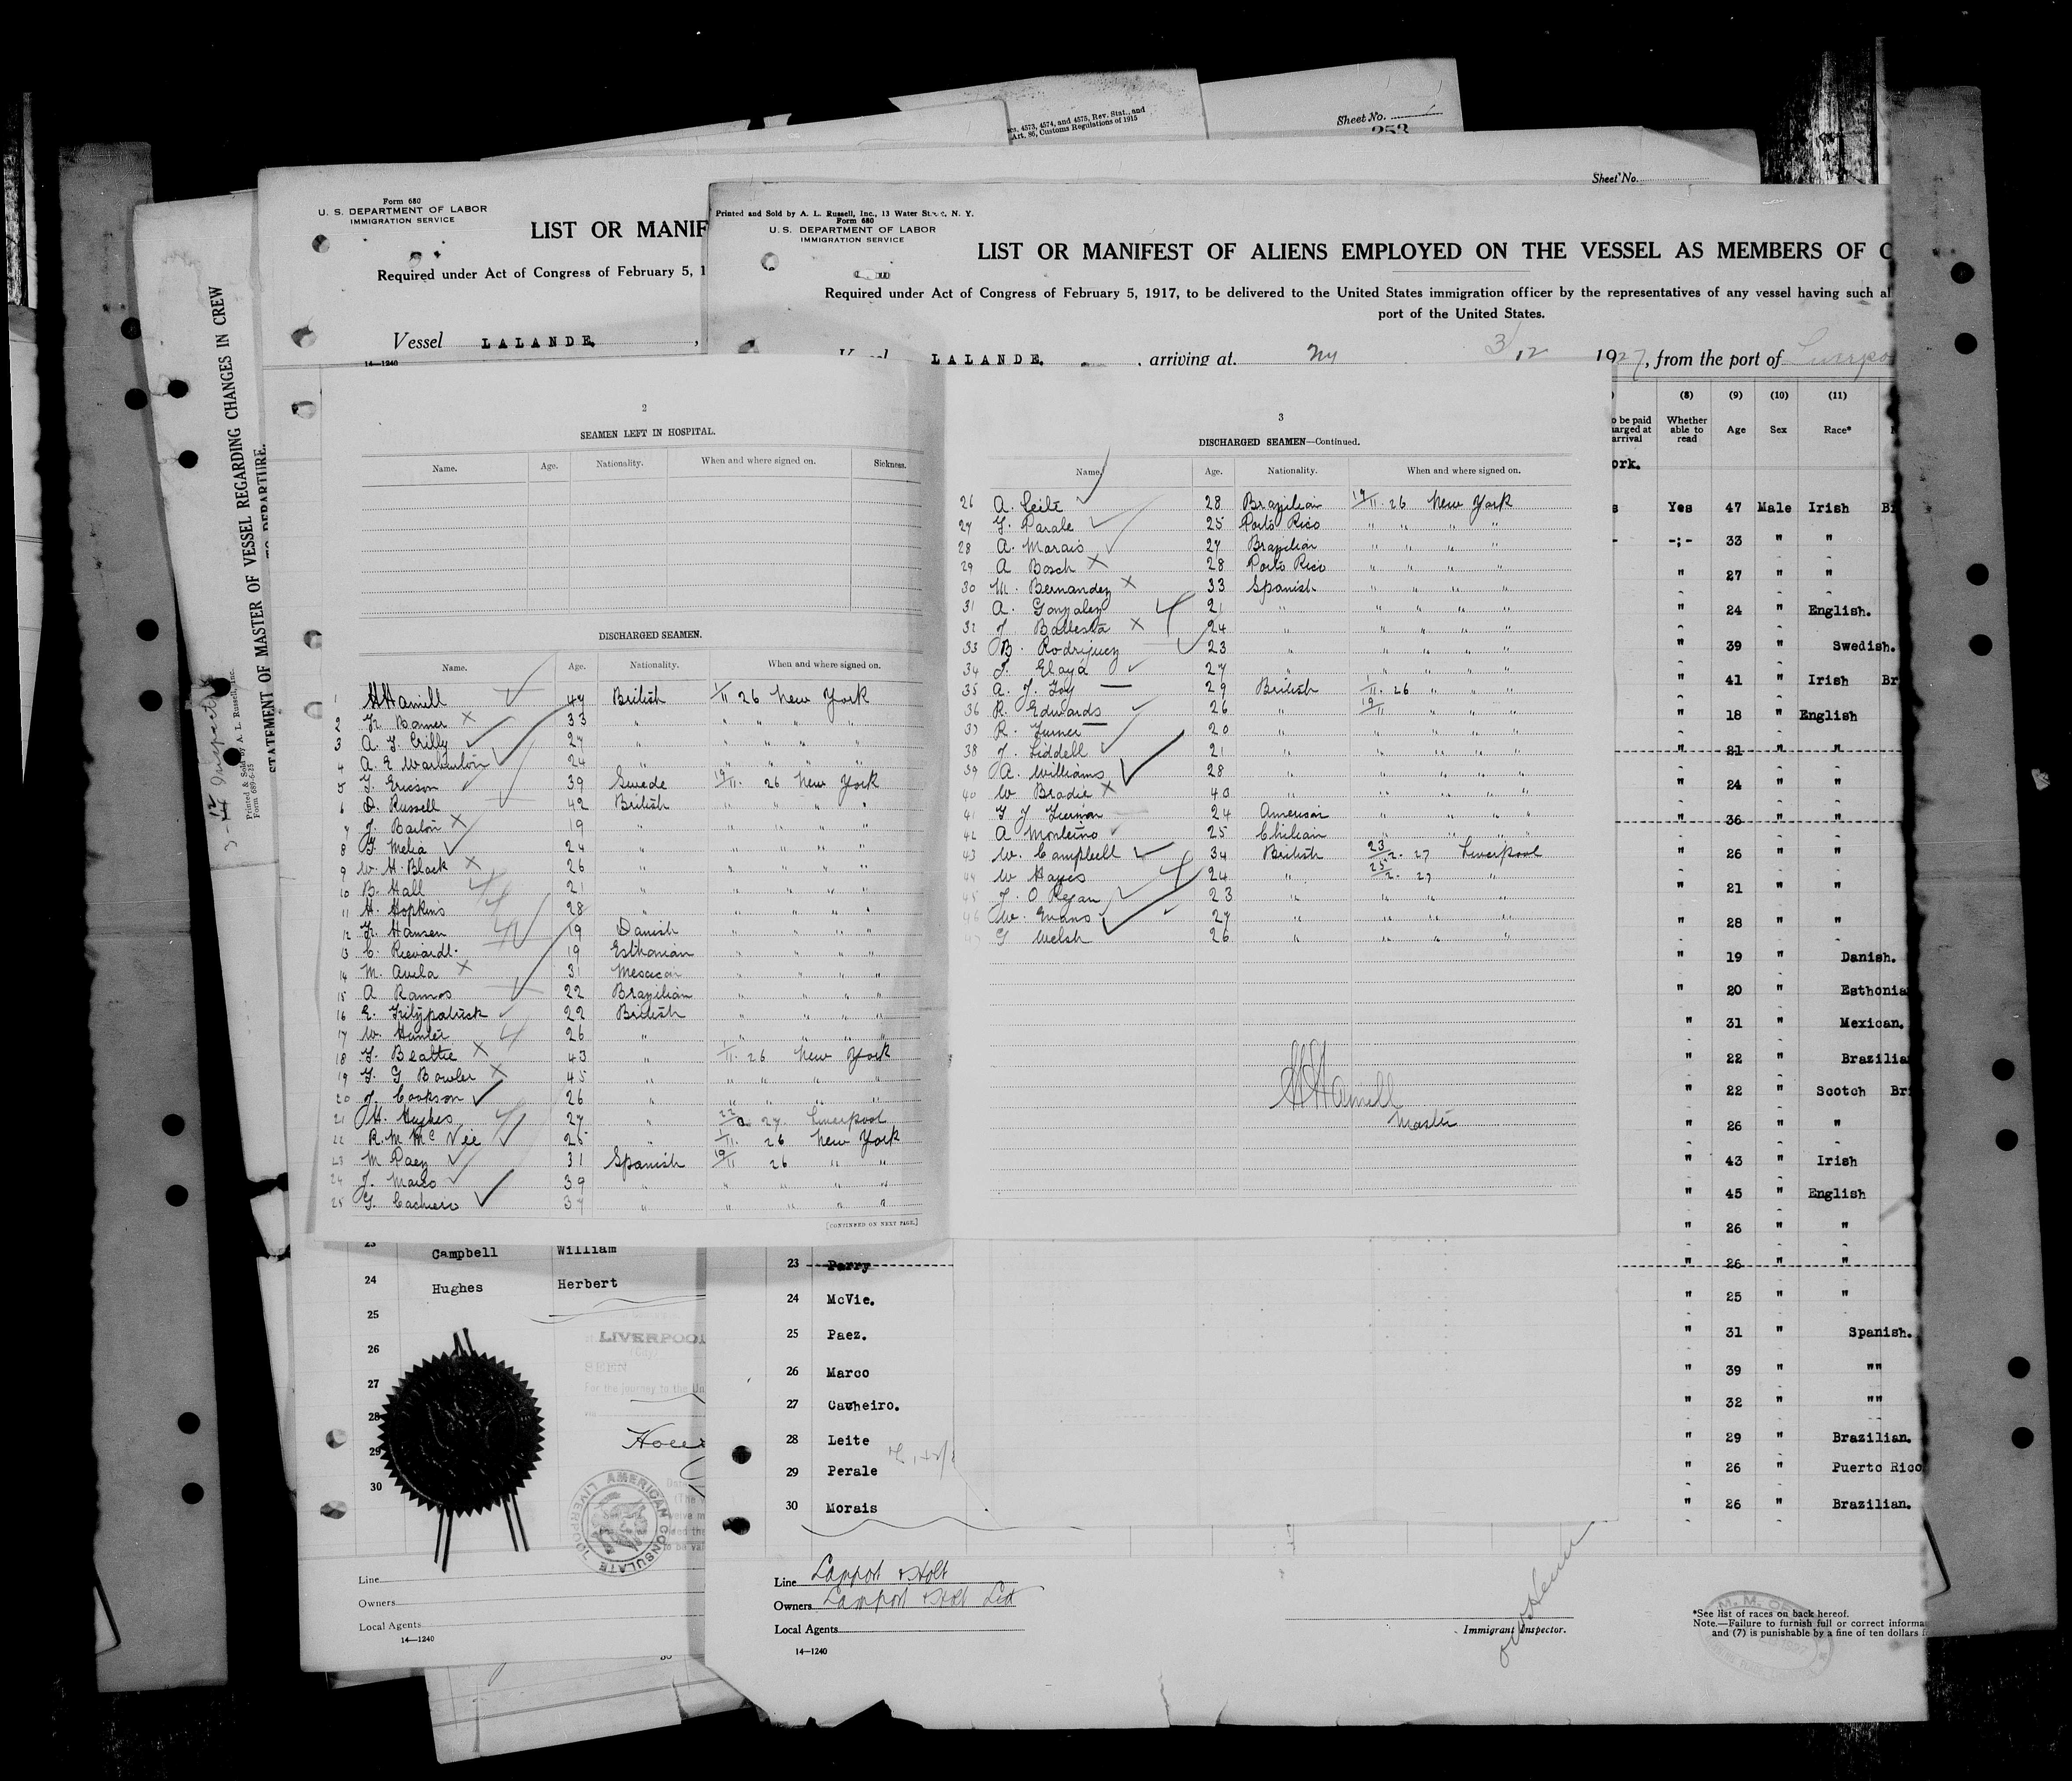 Sheet No.
253
Secs. 4573, 4574, and 4575, Rev. Stat., and
Art. 86, Customs Regulations of 1915
Sheet No.
STATEMENT OF MASTER OF VESSEL REGARDING CHANGES IN CREW
Printed & Sold by A. L. Russell, Inc.
Form 689-6-25
Form 680
U. S. DEPARTMENT OF LABOR
IMMIGRATION SERVICE
LIST OR MANIF
Required under Act of Congress of February 5, 1
Vessel LALANDE,
14—1240
Printed and Sold by A. L. Russell, Inc., 13 Water Street, N. Y.
Form 680
U. S. DEPARTMENT OF LABOR
IMMIGRATION SERVICE
LIST OR MANIFEST OF ALIENS EMPLOYED ON THE VESSEL AS MEMBERS OF C
Required under Act of Congress of February 5, 1917, to be delivered to the United States immigration officer by the representatives of any vessel having such al
port of the United States.
LALANDE, arriving at NY 3/12 1927, from the port of Liverpo
2
SEAMEN LEFT IN HOSPITAL.
Name. Age. Nationality. When and where signed on. Sickness.
DISCHARGED SEAMEN.
Name. Age. Nationality. When and where signed on.
1 H Hamill 47 British 1/11 26 New York
2 33 " " " " "
3 A. J. Crilly 27 " " " " "
4 A. E. Warburton 24 " " " " "
5 Ericson 39 Swede 19/11. 26 New York
6 D. Russell 42 British " " " "
7 J. Barton 19 " " " " "
8 Melia 24 " " " " "
9 W. H. Black 26 " " " " "
10 B. Hall 21 " " " " "
11 H. Hopkins 28 " " " " "
12 Hansen 19 Danish " " " "
13 19 Esthonian " " " "
14 M. Avila 31 Mexican " " " "
15 A Ramos 22 Brazilian " " " "
16 E. Fitzpatrick 22 British " " " "
17 W. Hunter 26 " " " " "
18 Beattie 43 " 1/11. 26 New York
19 G Bowler 45 " " " " "
20 J. Cookson 26 " " " " "
21 H. Hughes 27 " 22/2 27. Liverpool
22 R. M. McVie 25 " 1/11. 26 New York
23 M Paez 31 Spanish 19/11 26 " "
24 J. Marco 39 " " " " "
25 Cacheiro 37 " " " " "
[CONTINUED ON NEXT PAGE.]
3
DISCHARGED SEAMEN—Continued.
Name. Age. Nationality. When and where signed on.
26 A. Leite 28 Brazilian 19/11. 26 New York
27 Parale 25 Porto Rico " " " "
28 A. Marais 27 Brazilian " " " "
29 A Bosch 28 Porto Rico " " " "
30 M. Bernandez 33 Spanish " " " "
31 A. Gonzalez 21 " " " " "
32 J Ballesta 24 " " " " "
33 B. Rodriguez 23 " " " " "
34 Eloya 27 " " " " "
35 A. J. Foy 29 British 1/11. 26 " "
36 R. Edwards 26 " 19/11 " " "
37 R. Turner 20 " " " " "
38 J. Liddell 21 " " " " "
39 A. Williams 28 " " " " "
40 W Bradie 40 " " " " "
41 24 American " " " "
42 A Monteiro 25 Chilian " " " "
43 W. Campbell 34 British 23/2. 27 Liverpool
44 W Hayes 24 " 25/2. 27 "
45 J. O Regan 23 " " " "
46 W. Evans 27 " " " "
47 G Welsh 26 " " " "
H Hamill
Master
(8) (9) (10) (11)
o be paid
arged at
arrival
Whether
able to
read
Age Sex Race*
ork.
s Yes 47 Male Irish
-;- 33 " "
" 27 " "
" 24 " English.
" 39 " Swedish.
" 41 " Irish Br
" 18 " English
" 21 " "
" 24 " "
" 36 " "
" 26 " "
" 21 " "
" 28 " "
" 19 " Danish.
" 20 " Esthonia
" 31 " Mexican.
" 22 " Brazilia
" 22 " Scotch Br
" 26 " "
" 43 " Irish
" 45 " English
" 26 " "
" 26 " "
" 25 " "
" 31 " Spanish.
" 39 " ""
" 32 " ""
" 29 " Brazilian.
" 26 " Puerto Rico
" 26 " Brazilian.
23 Campbell William
24 Hughes Herbert
25
26
27
28
29
30
LIVERPOOL
(City)
SEEN
For the journey to the Un
AMERICAN CONSULATE LIVERPOOL
Line
Owners
Local Agents
14—1240
23 Parry
24 McVie.
25 Paez.
26 Marco
27 Cacheiro.
28 Leite
29 Perale
30 Morais
Line Lamport & Holt
Owners Lamport & Holt Ltd
Local Agents
14—1240
Immigrant Inspector.
*See list of races on back hereof.
Note.—Failure to furnish full or correct informa
and (7) is punishable by a fine of ten dollars f